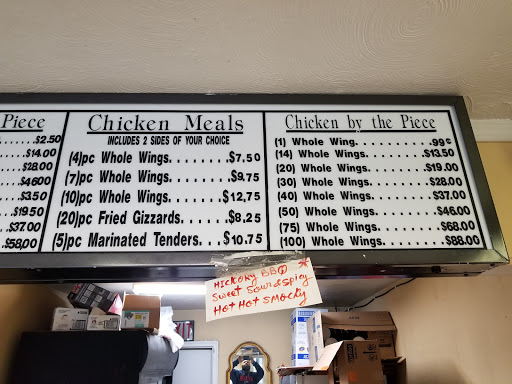 Piece
.$2.50
$14.00
$28.00
$46.00
.$3.50
.$19.50
.$37.00
.$58.00
Chicken Meals
INCLUDES 2 SIDES OF YOUR CHOICE
(4)pc Whole Wings.......$7.50
(7)pc Whole Wings.......$9.75
(10)pc Whole Wings......$12,75
(20)pc Fried Gizzards......$8,25
(5)pc Marinated Tenders...$10.75
Chicken by the Piece
(1) Whole Wing..........99¢
(14) Whole Wings........$13.50
(20) Whole Wings........$19.00
(30) Whole Wings........$28.00
(40) Whole Wings........$37.00
(50) Whole Wings........$46.00
(75) Whole Wings........$68.00
(100) Whole Wings.......$88.00
HICKORY BBQ *
Sweet Sour & Spicy
Hot Hot Smocky